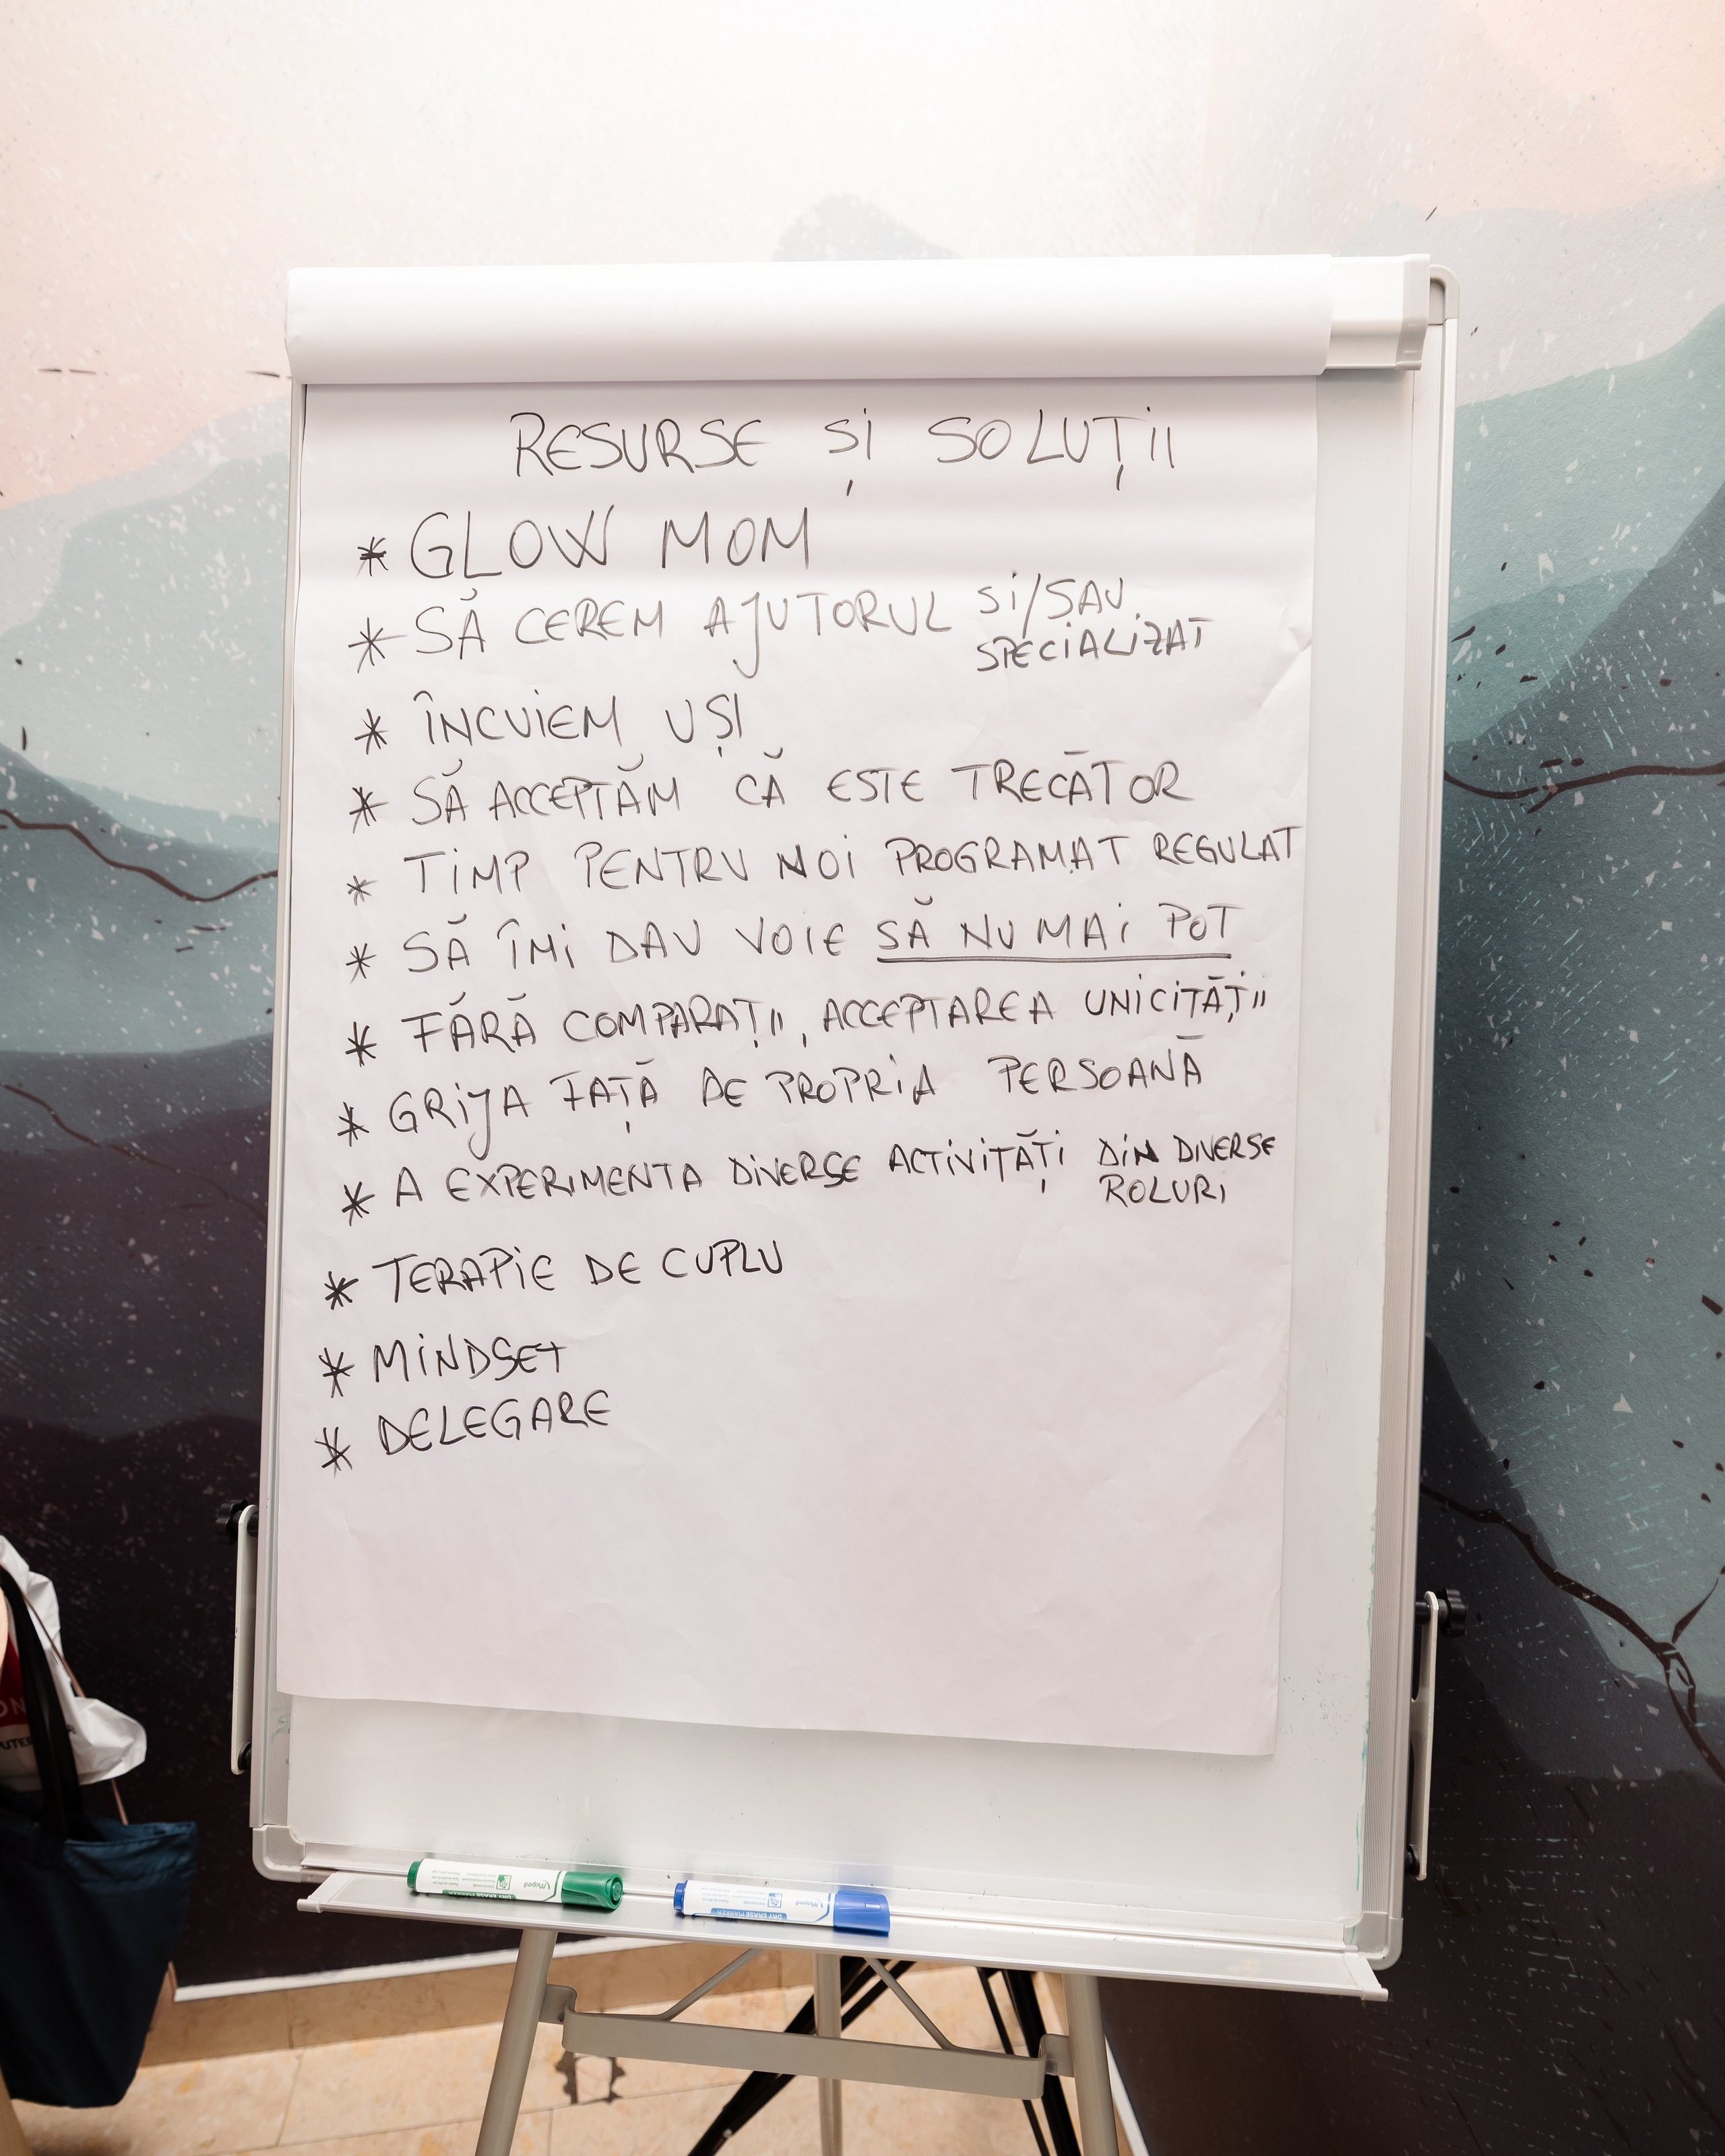 RESURSE ȘI SOLUȚII
* GLOW MOM
* SĂ CEREM AJUTORUL SI/SAU
SPECIALIZAT
* ÎNCUIEM UȘI
* SĂ ACCEPTĂM CĂ ESTE TRECĂTOR
* TIMP PENTRU NOI PROGRAMAT REGULAT
* SĂ ÎMI DAU VOIE SĂ NU MAI POT
* FĂRĂ COMPARAȚII, ACCEPTAREA UNICITĂȚII
* GRIJA FAȚĂ DE PROPRIA PERSOANĂ
* A EXPERIMENTA DIVERSE ACTIVITĂȚI DIN DIVERSE
ROLURI
* TERAPIE DE CUPLU
* MINDSET
* DELEGARE
Maped
DRY ERASE MARKER
Maped
DRY ERASE MARKER